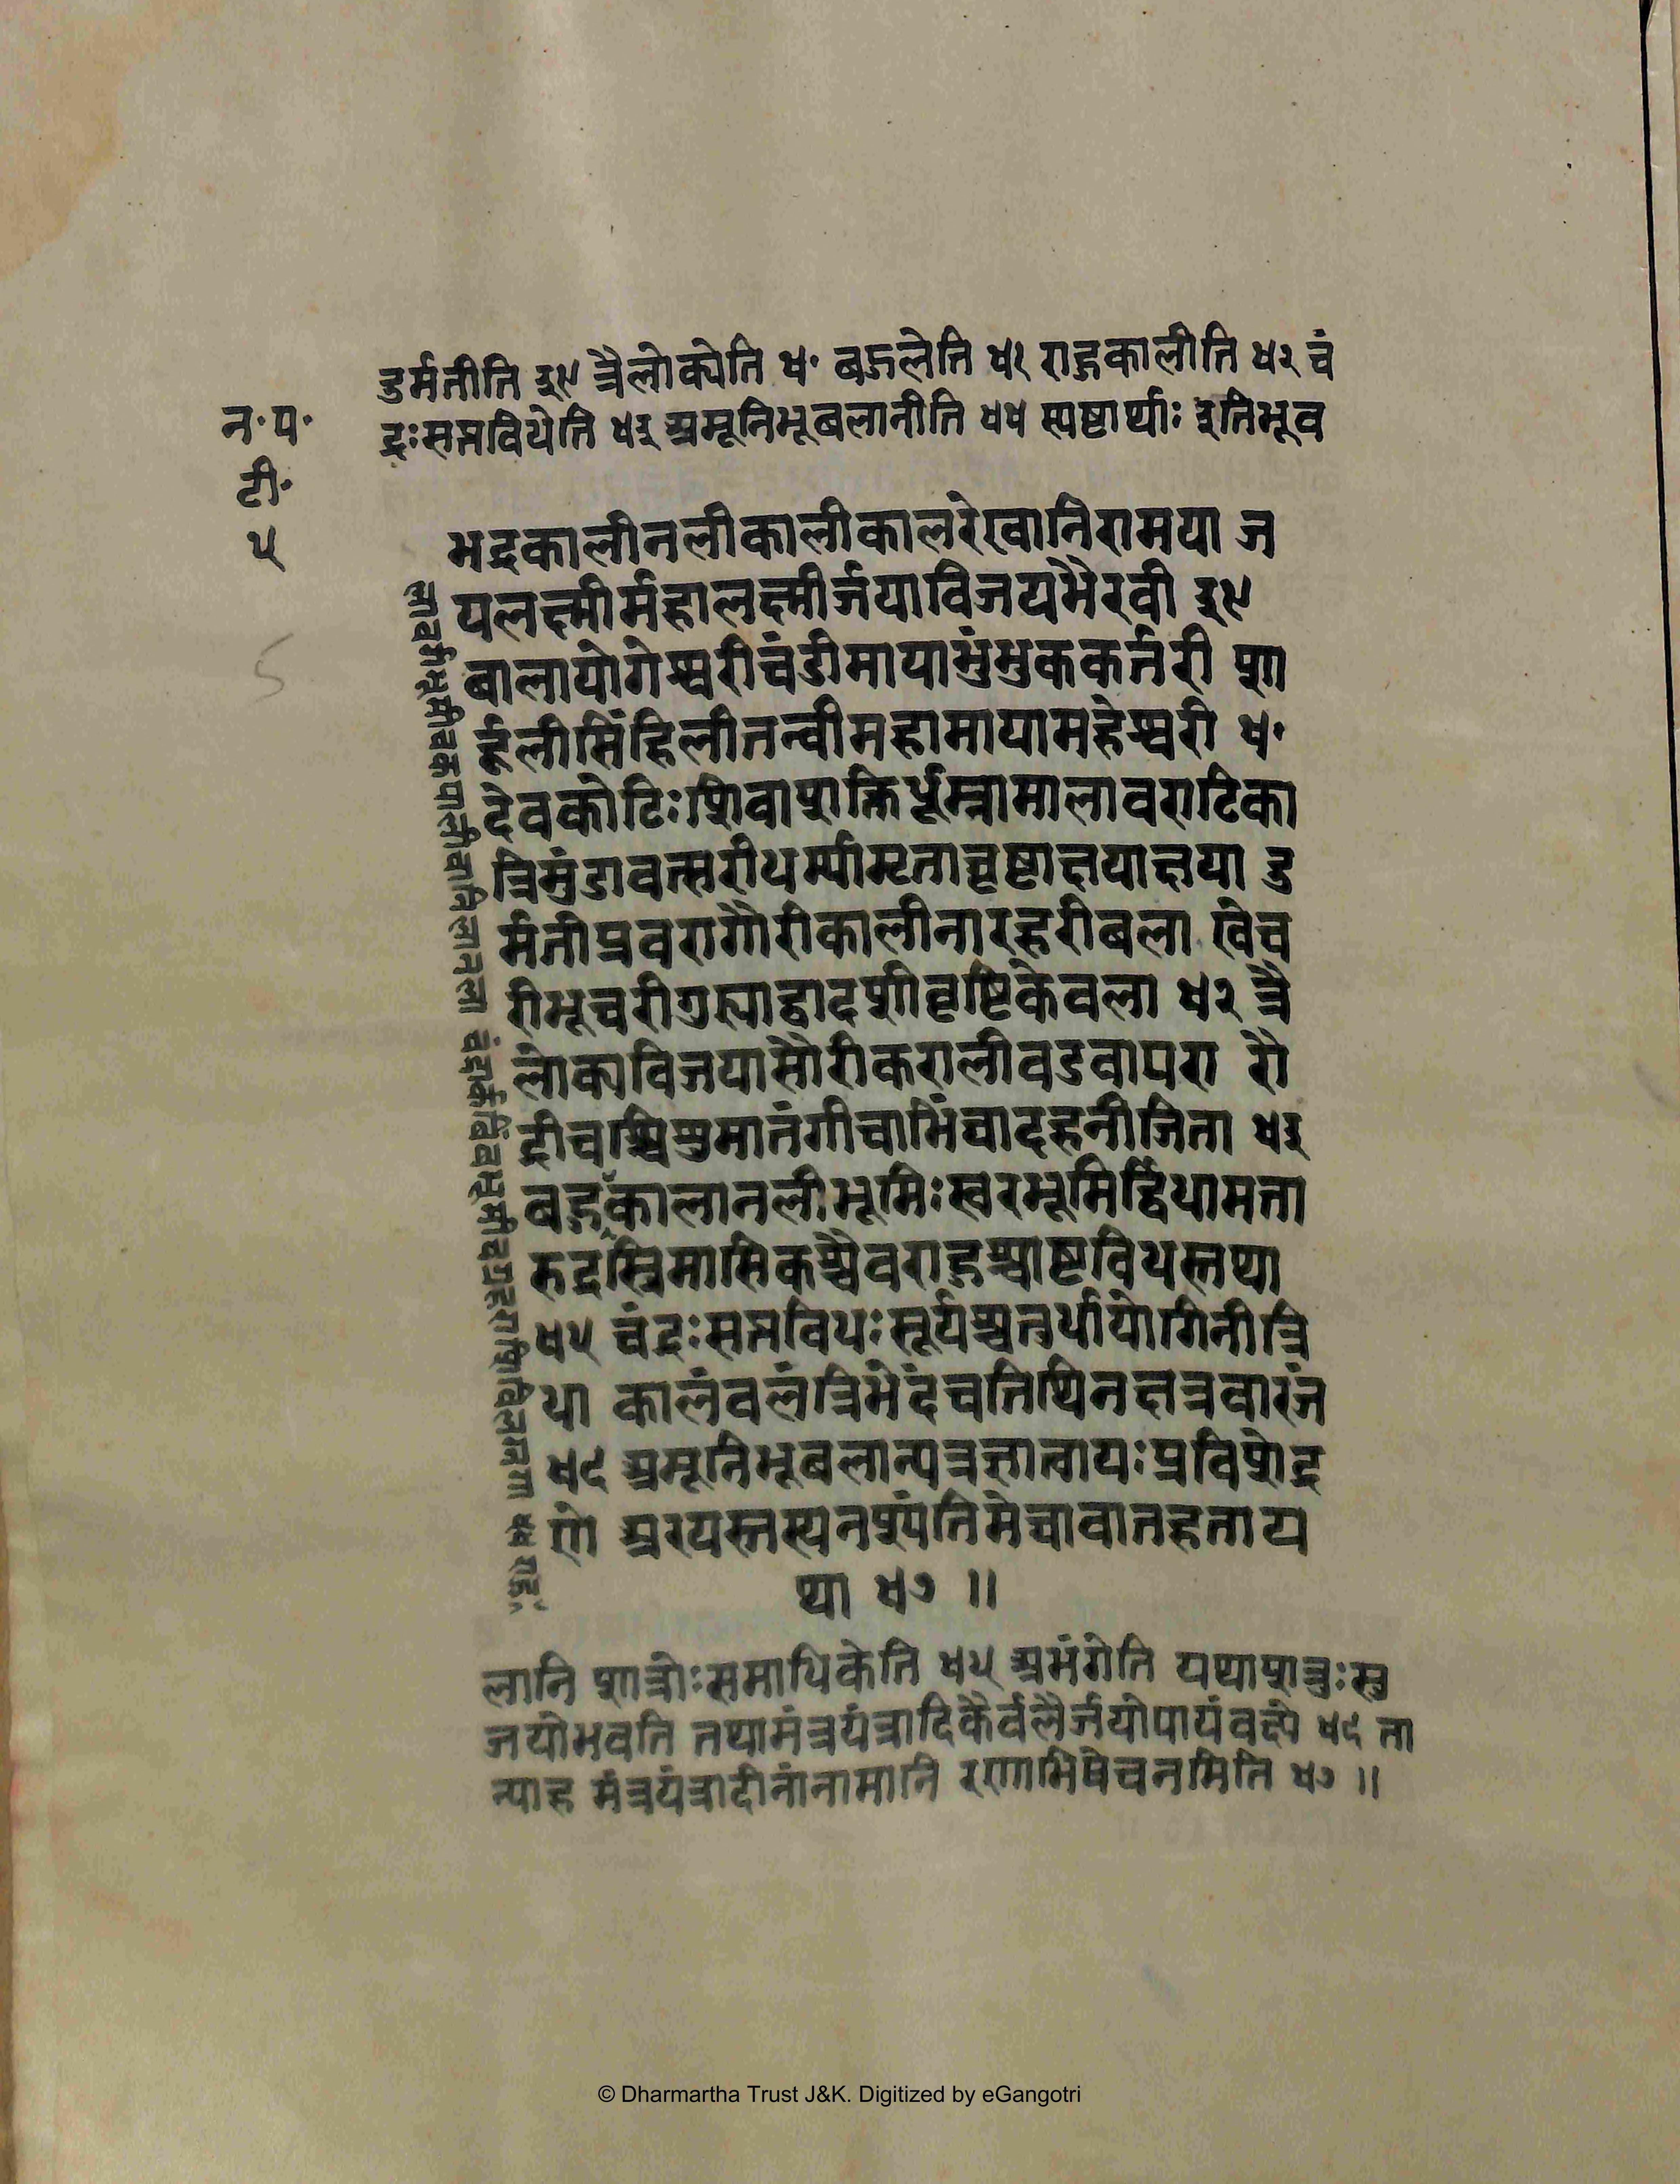 दुर्मतीति ३९ त्रैलोक्येति ४॰ बज्रलेति ४१ राहुकालीति ४२ चं
न॰ प॰
द्रःसप्तविधेति ४३ अमूनिभूबलानीति ४४ स्पष्टार्थाः इतिभूव
टी॰
५
भद्रकालीनलीकालीकालरेखानिरामया ज
यलक्ष्मीर्महालक्ष्मीर्जयाविजयभैरवी ३९
बालायोगेश्वरीचंडीमायाभुंभुककर्त्तरी शा
र्दूलीसिंहिलीतन्वीमहामायामहेश्वरी ४॰
देवकोटिःशिवाशक्तिर्धूम्रामालावराटिका
त्रिमुंडावत्सरीधर्म्यामृताच्चष्टाक्षयाक्षया दु
र्मतीप्रवरागौरीकालीनारहरीबला खेच
रीभूचरीगुह्याद्वादशीवृष्टिकेवला ४२ त्रै
लोक्यविजयासौरीकरालीवडवापरा रौ
द्रीचशिशुमातंगीचाभिंवादहनीजिता ४३
बहुकालानलीभूमिःस्वरभूमिर्द्विधामता
रुद्रस्त्रिमासिकश्चैवराहुश्चाष्टविधस्तथा
४५ चंद्रःसप्तविधःसूर्यश्चतुर्थायोगिनीत्रि
धा कालंवलंत्रिभेदंचतिथिनक्षत्रवारजं
४६ अमूनिभूबलान्यत्रज्ञात्वायःप्रविशेद्र
णे अरयस्तस्यनश्यंतिमेघावातहताय
था ४७ ॥
लानि शत्रोःसमाधिकेति ४५ अभंगेति यथाशत्रुःस्तु
जयोभवति तथामंत्रयंत्रादिकैर्वलैर्जयोपायंवक्ष्ये ४६ ता
न्याह मंत्रयंत्रादीनांनामानि रणाभिषेचनमिति ४७ ॥
5
© Dharmartha Trust J&K. Digitized by eGangotri